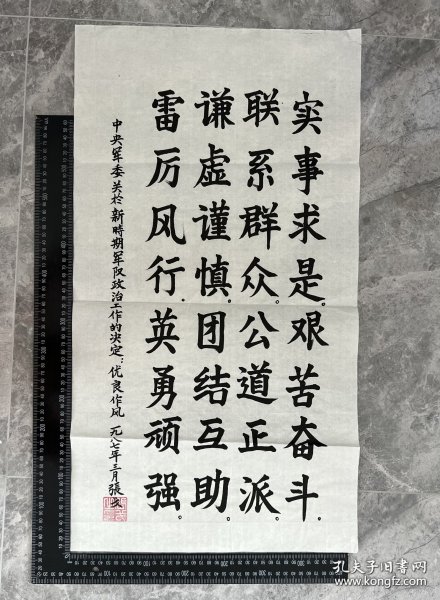 实事求是。艰苦奋斗。
联系群众。公道正派。
谦虚谨慎。团结互助。
雷厉风行。英勇顽强。
中央军委关於新時期军队政治工作的决定：优良作风 一九八七年三月 張文
孔夫子旧书网
www.kongfz.com